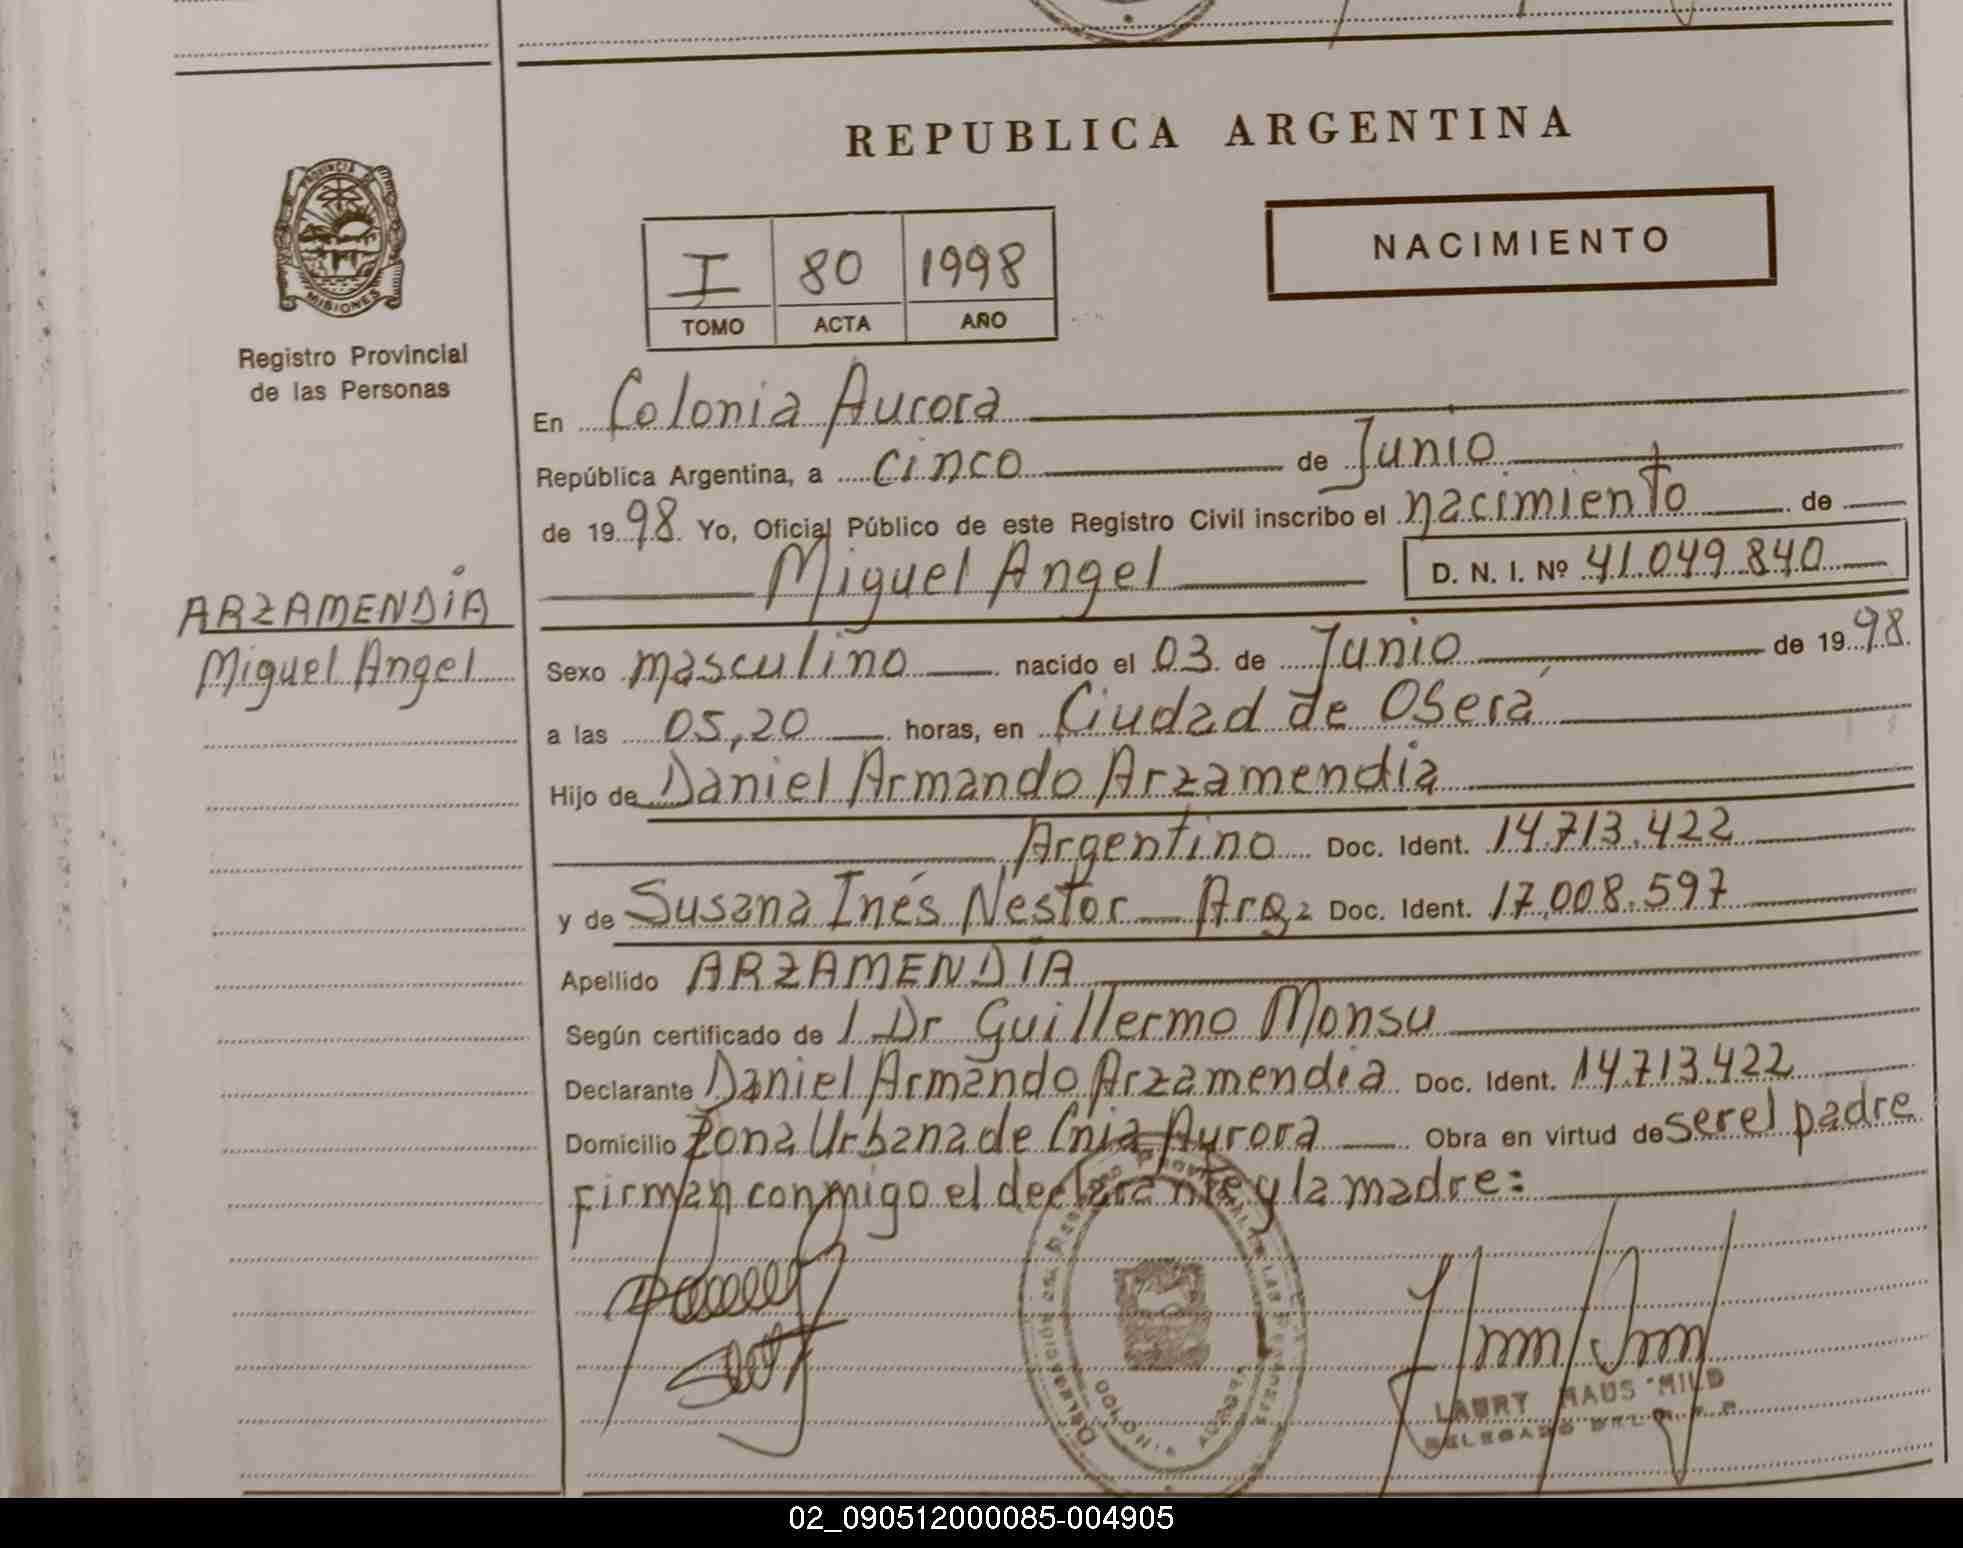 REPUBLICA ARGENTINA
NACIMIENTO
I 80 1998
TOMO ACTA AÑO
PROVINCIA DE
MISIONES
Registro Provincial
de las Personas
ARZAMENDÍA
Miguel Angel
En Colonia Aurora
República Argentina, a cinco de Junio
de 1998 Yo, Oficial Público de este Registro Civil inscribo el nacimiento de
Miguel Angel D. N. I. Nº 41.049.840
Sexo masculino nacido el 03 de Junio de 1998.
a las 05,20 horas, en Ciudad de Oberá
Hijo de Daniel Armando Arzamendia
Argentino Doc. Ident. 14.713.422
y de Susana Inés Nestor Arg. Doc. Ident. 17.008.597
Apellido ARZAMENDÍA
Según certificado de l Dr Guillermo Monsu
Declarante Daniel Armando Arzamendia Doc. Ident. 14.713.422
Domicilio Zona Urbana de Cnia Aurora Obra en virtud de ser el padre
firman conmigo el declarante y la madre:
DELEGACION DEL REGISTRO PROVINCIAL DE LAS PERSONAS
COLONIA AURORA
LAURY HAUS MILD
DELEGADO
02_090512000085-004905